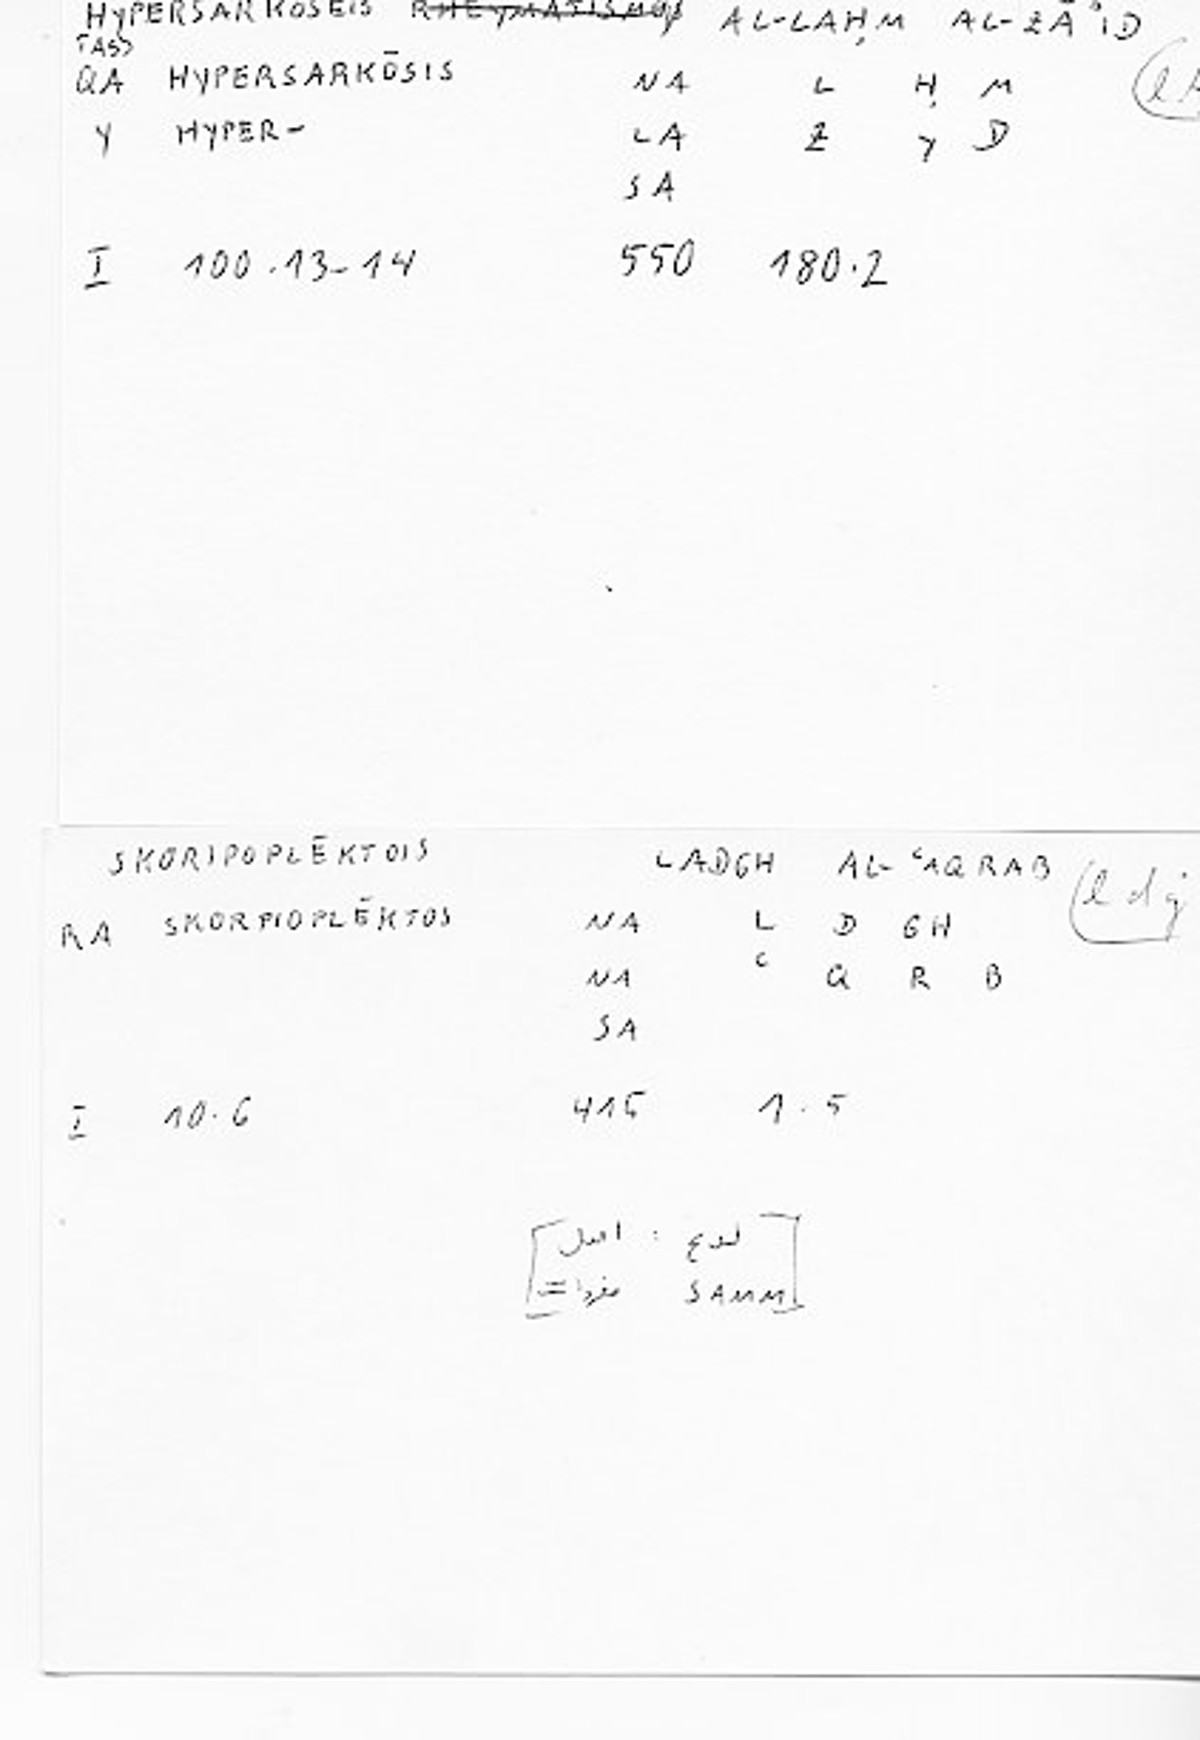 HYPERSARKŌSEIS RHEYMATISMOY AL-LAḤM AL-ZĀʾID
TASS
QA HYPERSARKŌSIS NA L Ḥ M
Y HYPER- LA Z Y D
SA
I 100.13-14 550 180.2
SKORIPOPLĒKTOIS LADGH AL-ʿAQRAB
RA SKORPIOPLĒKTOS NA L D GH (l d ġ
NA ʿ Q R B
SA
I 10.6 415 1.5
لدغ : اصل
SAMM